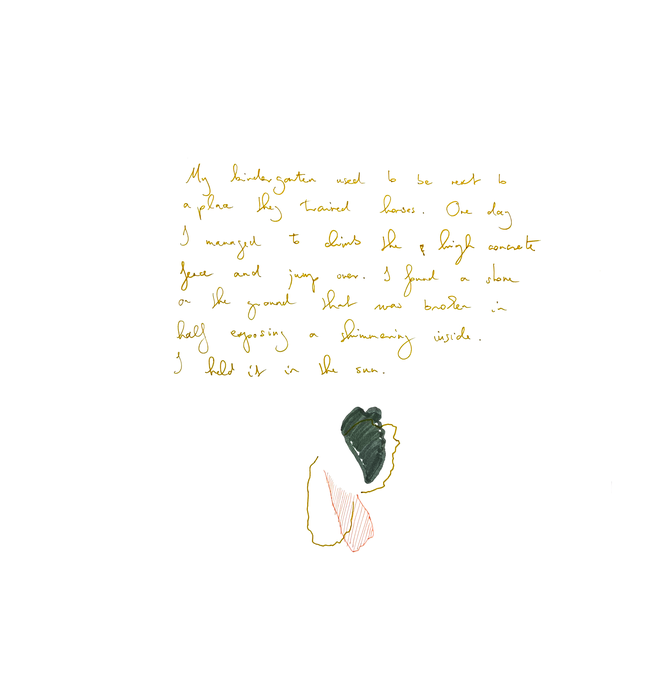 My kindergarten used to be next to
a place they trained horses. One day
I managed to climb the high concrete
fence and jump over. I found a stone
on the ground that was broken in
half exposing a shimmering inside.
I held it in the sun.